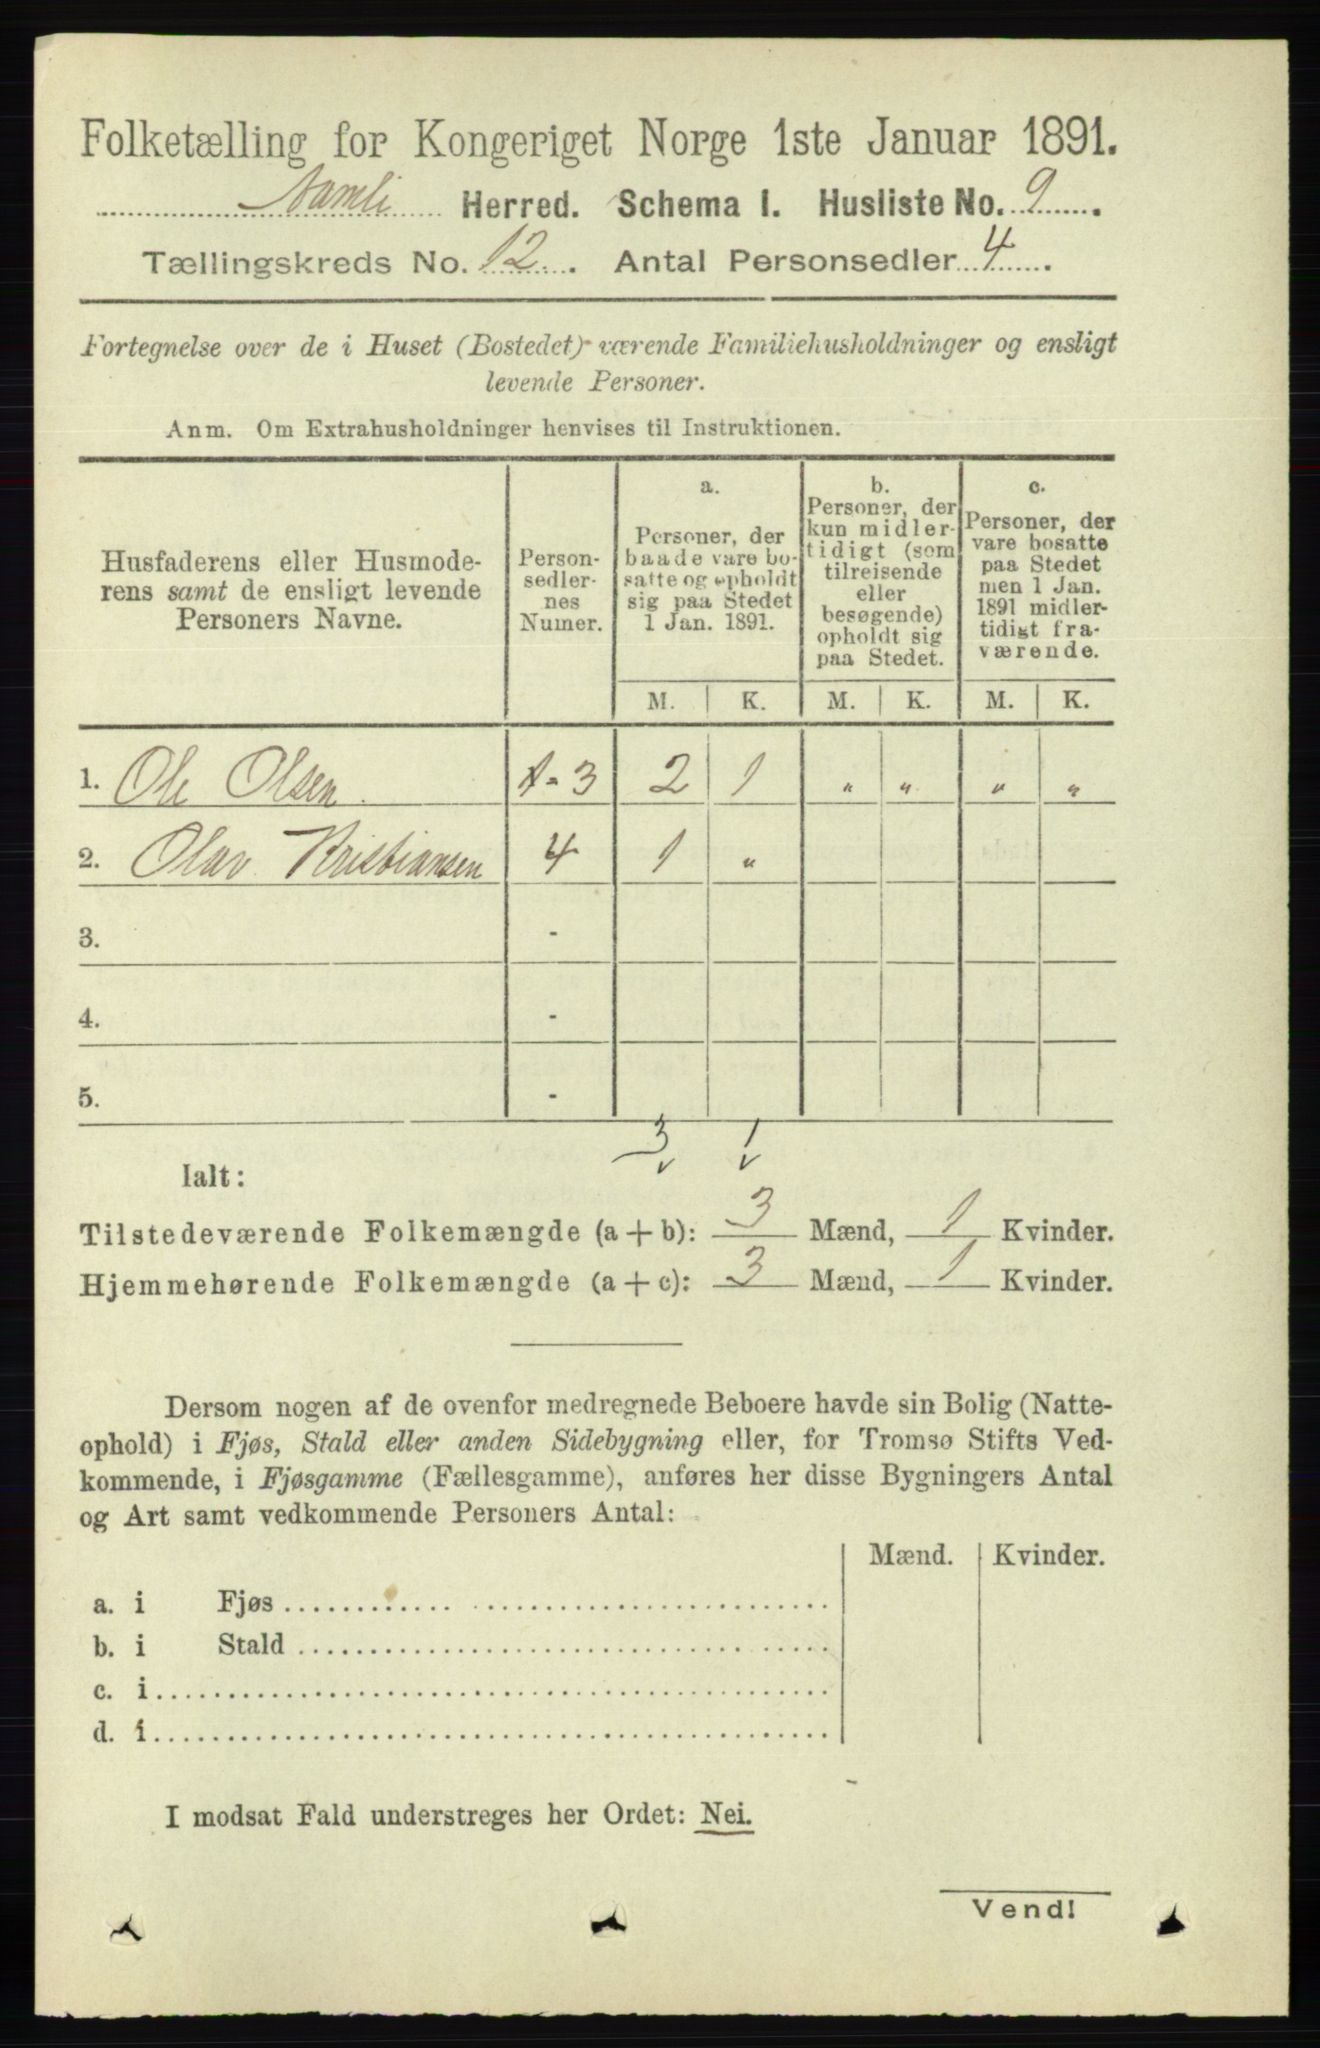 Folketælling for Kongeriget Norge 1ste Januar 1891.
Aamli Herred. Schema I. Husliste No. 9.
Tællingskreds No. 12. Antal Personsedler 4.
Fortegnelse over de i Huset (Bostedet) værende Familiehusholdninger og ensligt
levende Personer.
Anm. Om Extrahusholdninger henvises til Instruktionen.
Husfaderens eller Husmode-
rens samt de ensligt levende
Personers Navne.
Person-
sedler-
nes
Numer.
a.
Personer, der
baade vare bo-
satte og opholdt
sig paa Stedet
1 Jan. 1891.
b.
Personer, der
kun midler-
tidigt (som
tilreisende
eller
besøgende)
opholdt sig
paa Stedet.
c.
Personer, der
vare bosatte
paa Stedet
men 1 Jan.
1891 midler-
tidigt fra-
værende.
M. K. M. K. M. K.
1. Ole Olsen 1-3 2 1 " " " "
2. Olav Kristiansen 4 1 "
3. -
4. -
5. -
3 1
Ialt:
Tilstedeværende Folkemængde (a + b): 3 Mænd, 1 Kvinder.
Hjemmehørende Folkemængde (a + c): 3 Mænd, 1 Kvinder.
Dersom nogen af de ovenfor medregnede Beboere havde sin Bolig (Natte-
ophold) i Fjøs, Stald eller anden Sidebygning eller, for Tromsø Stifts Ved-
kommende, i Fjøsgamme (Fællesgamme), anføres her disse Bygningers Antal
og Art samt vedkommende Personers Antal:
Mænd. Kvinder.
a. i Fjøs
b. i Stald
c. i
d. i
I modsat Fald understreges her Ordet: Nei.
Vend!